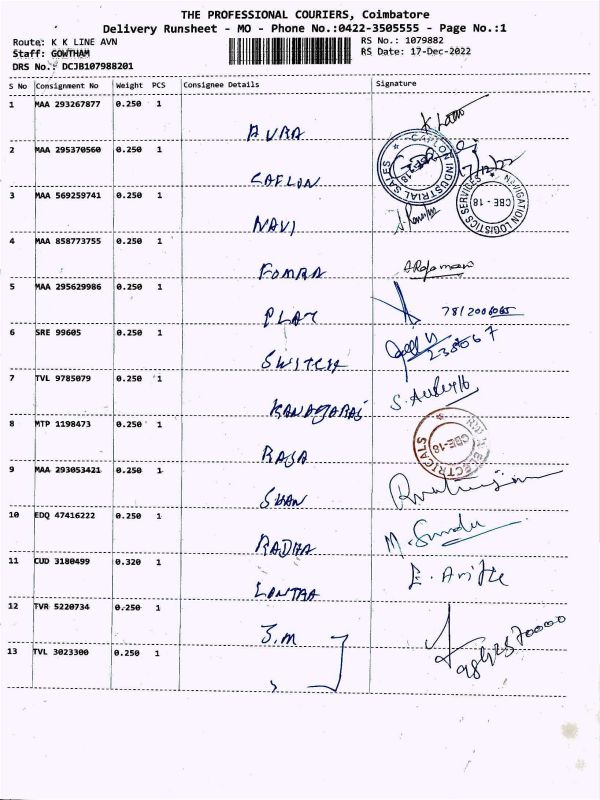 THE PROFESSIONAL COURIERS, Coimbatore
Delivery Runsheet - MO - Phone No.:0422-3505555 - Page No.:1
Route: K K LINE AVN
Staff: GOWTHAM
DRS No.: DCJB107988201
RS No.: 1079882
RS Date: 17-Dec-2022
S No Consignment No Weight PCS Consignee Details Signature
1 MAA 293267877 0.250 1
AVRA
2 MAA 295370560 0.250 1
CAPLON INDUSTRIAL SALES
CAPLON
3 MAA 569259741 0.250 1
NAVIGATION LOGISTICS SERVICES
CBE - 18
NAVI
4 MAA 858773755 0.250 1
FOMRA
5 MAA 295629986 0.250 1
PLAY
6 SRE 99605 0.250 1
238067
SWITCH
7 TVL 9785079 0.250 1
KANAGARAJ
8 MTP 1198473 0.250 1
ELECTRICALS
CBE-18
RAJA
9 MAA 293053421 0.250 1
SHAN
10 EDQ 47416222 0.250 1
RADHA
11 CUD 3180499 0.320 1
12 TVR 5220734 0.250 1
J.M
13 TVL 3023300 0.250 1